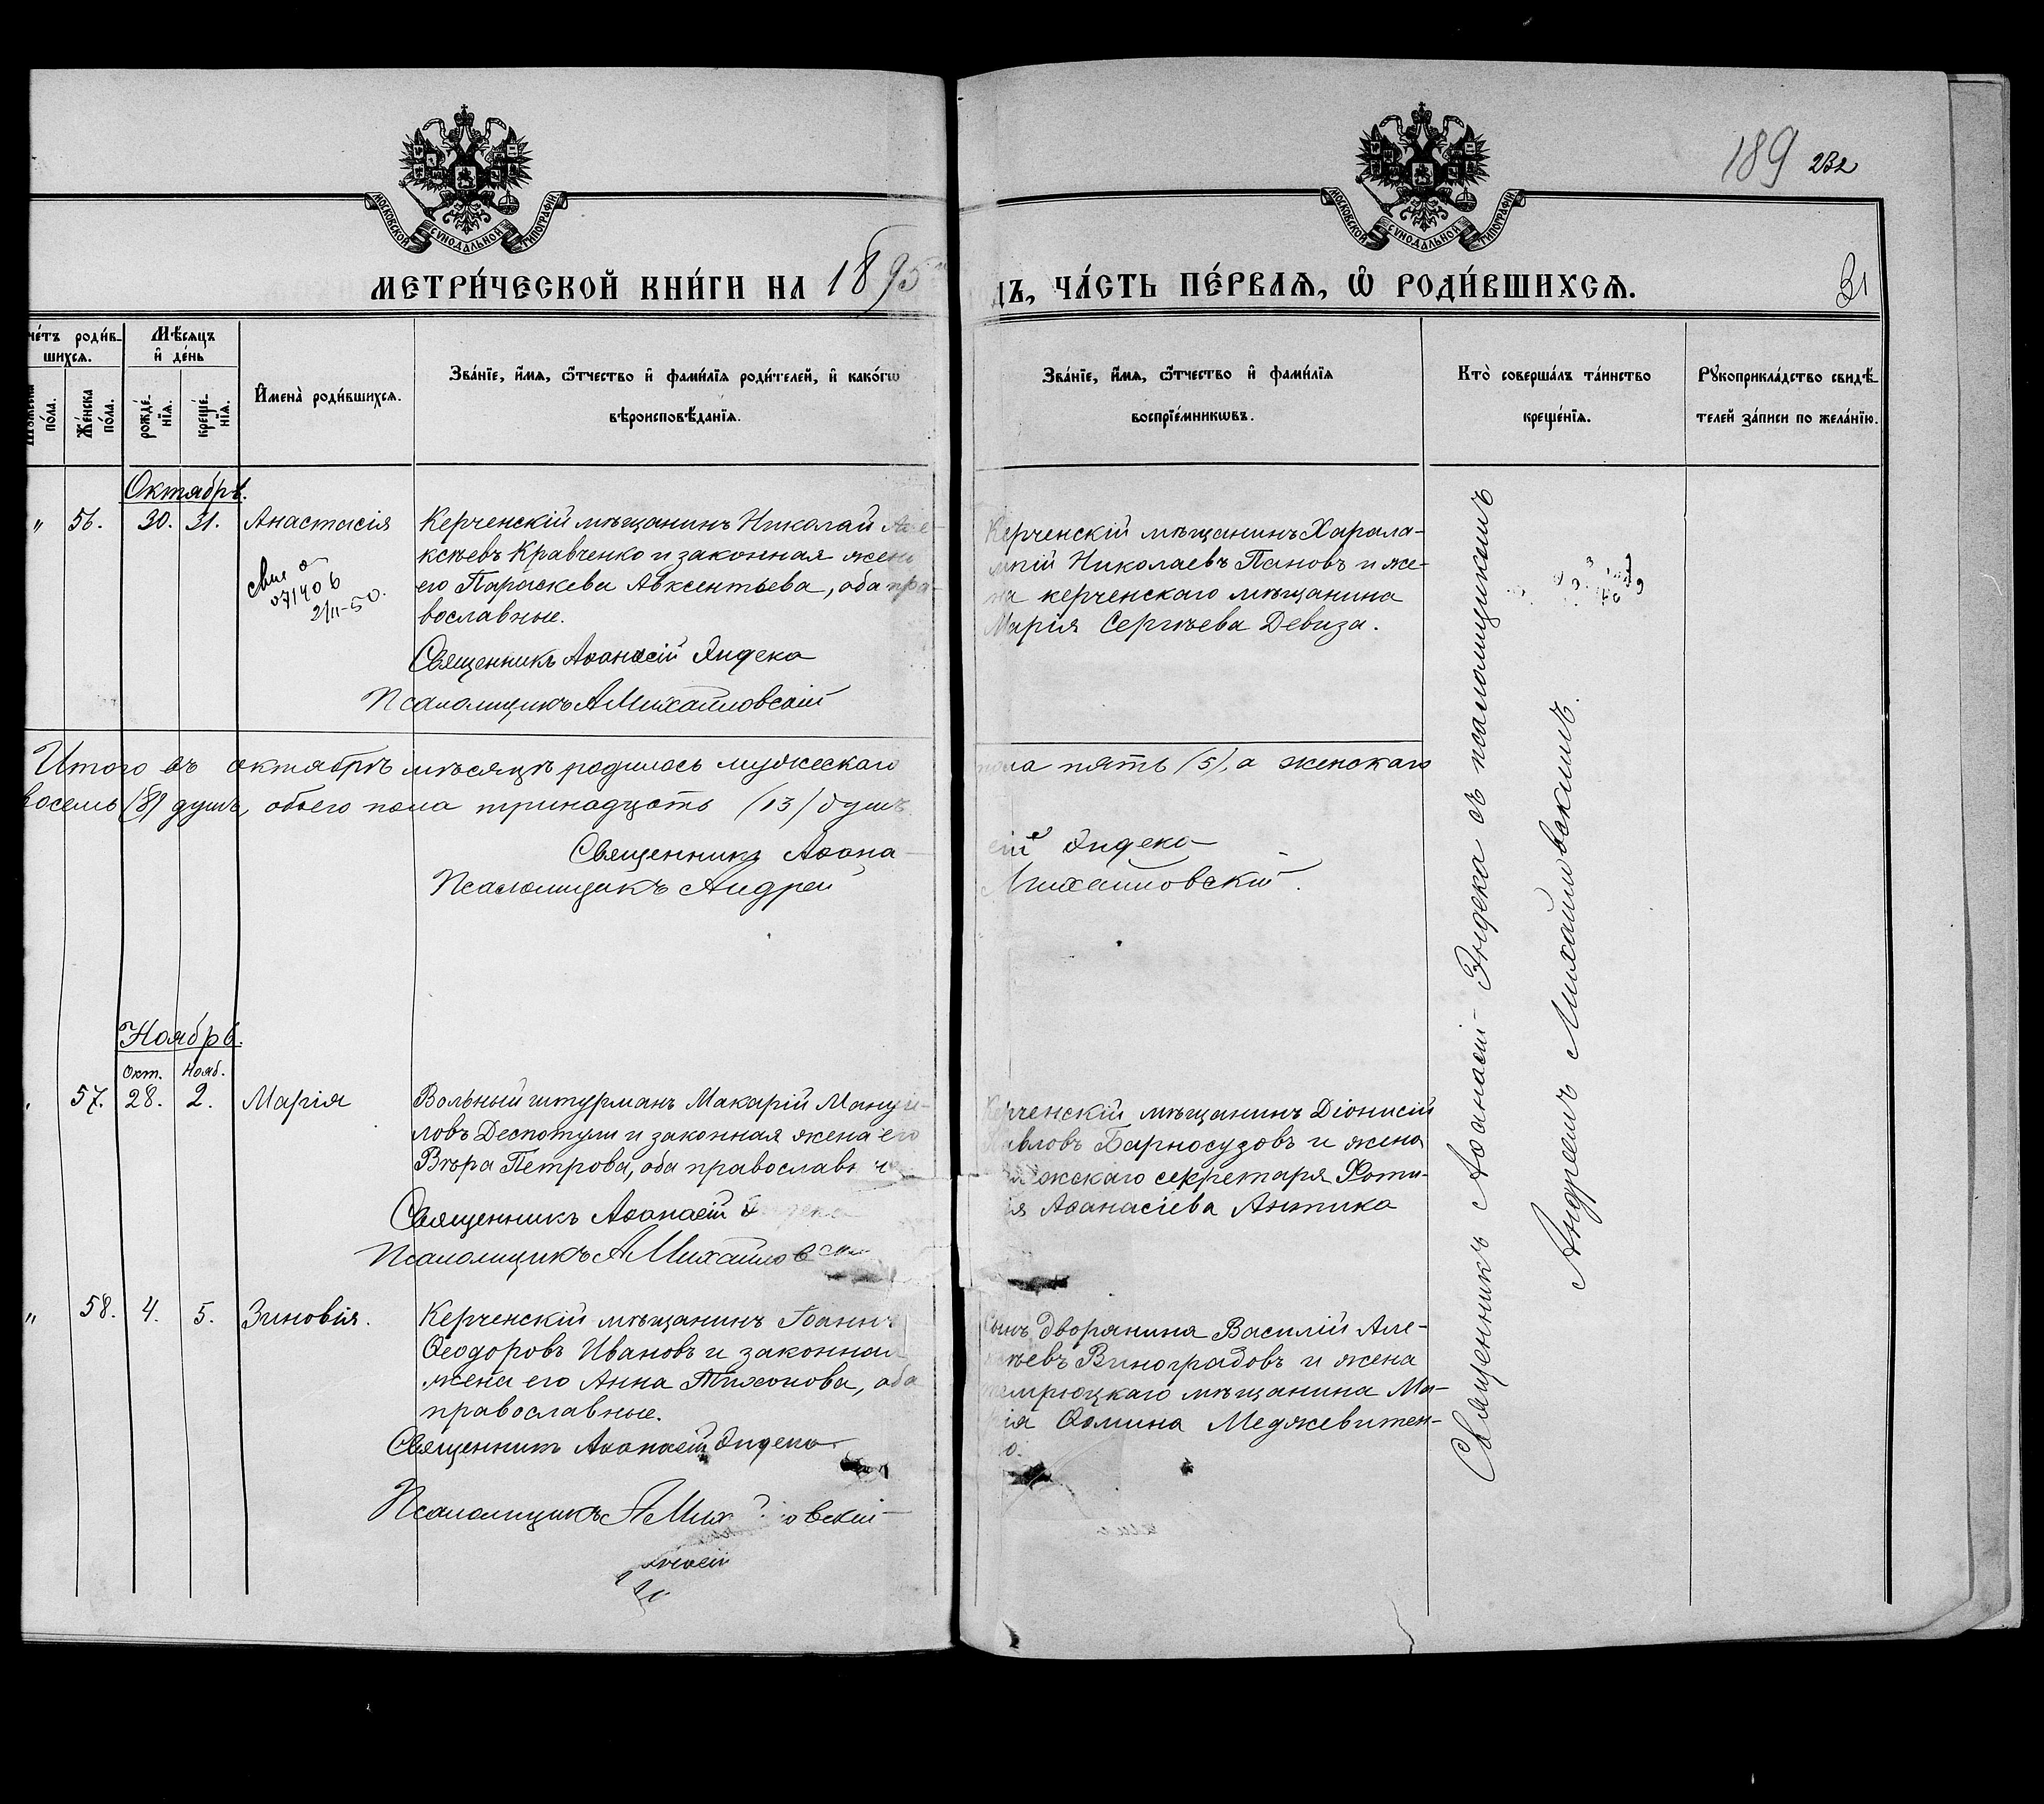 МОСКОВСКОЙ СѴНОДАЛЬНОЙ ТИПОГРАФІИ
МОСКОВСКОЙ СѴНОДАЛЬНОЙ ТИПОГРАФІИ
189 232
МЕТРИ́ЧЕСКОЙ КНИ́ГИ НА 1895
ДЪ, ЧА́СТЬ ПЕ́РВАѦ, Ѡ҆ РОДИ́ВШИХСѦ.
31
че́тъ роди́в-
шихсѧ.
по́ла.
Же́нска
по́ла.
Мѣ́сѧцъ
и҆ де́нь
рожде́-
нїѧ.
креще́-
нїѧ.
И҆мена̀ роди́вшихсѧ.
Зва́нїе, и҆́мѧ, ѻ҆́тчество и҆ фами́лїѧ роди́телей, и҆ како́гѡ
вѣроисповѣ́данїѧ.
Зва́нїе, и҆́мѧ, ѻ҆́тчество и҆ фами́лїѧ
воспрїе́мникѡвъ.
Кто̀ соверша́лъ та́инство
креще́нїѧ.
Рꙋкоприкла́дство свидѣ́-
телей за́писи по жела́нїю.
Октябрь.
" 56. 30. 31. Анастасія
Керченскій мѣщанинъ Николай Але-
ксѣевъ Кравченко и законная жена
его Параскева Авксентьева, оба пра-
вославные.
Священникъ Аѳанасій Эндека
Псаломщикъ А Михайловскій
2/II-50.
Керченскій мѣщанинъ Харала-
мпій Николаевъ Пановъ и же-
на керченскаго мѣщанина
Марія Сергѣева Девиза.
Итого въ октябрѣ мѣсяцѣ родилось мужескаго пола пять (5), а женскаго
восемь (8) душъ, обоего пола тринадцать (13) душъ
Священникъ Аѳана-сій Эндека
Псаломщикъ Андрей Михайловскій.
Ноябрь.
Окт. Нояб.
57. 28. 2. Марія
Вольный штурманъ Макарій Мануи-
ловъ Деспотули и законная жена его
Вѣра Петрова, оба православные
Священникъ Аѳанасій Эндека
Псаломщикъ А Михайловскій
Керченскій мѣщанинъ Діонисій
Павловъ Барносудовъ и жена
секретаря Фоти-
ія Аѳанасіева Антика
" 58. 4. 5. Зиновія.
Керченскій мѣщанинъ Іоаннъ
Ѳеодоровъ Ивановъ и законная
жена его Анна Тихонова, оба
православные.
Священникъ Аѳанасій Эндека
Псаломщикъ А Михайловскій
Сынъ дворянина Василій Але-
ксѣевъ Виноградовъ и жена
темрюцкаго мѣщанина Ма-
рія Ѳомина Меджевитен-
о.
Священникъ Аѳанасій Эндека съ псаломщикомъ
Андреемъ Михайловскимъ.